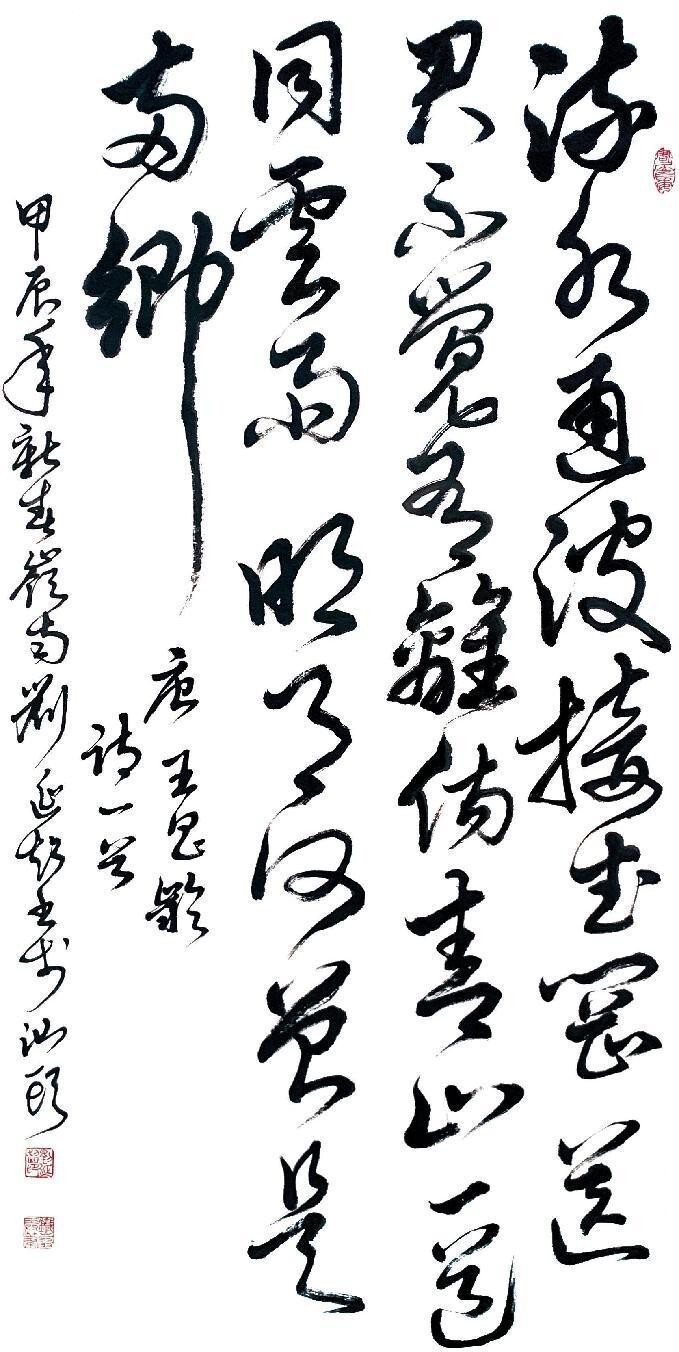 流水通波接武岡送
君不覺有離傷青山一道
同雲雨明月何曾是
兩鄉
唐王昌齡
詩一首
甲辰年新春嶺南劉延超書於汕頭